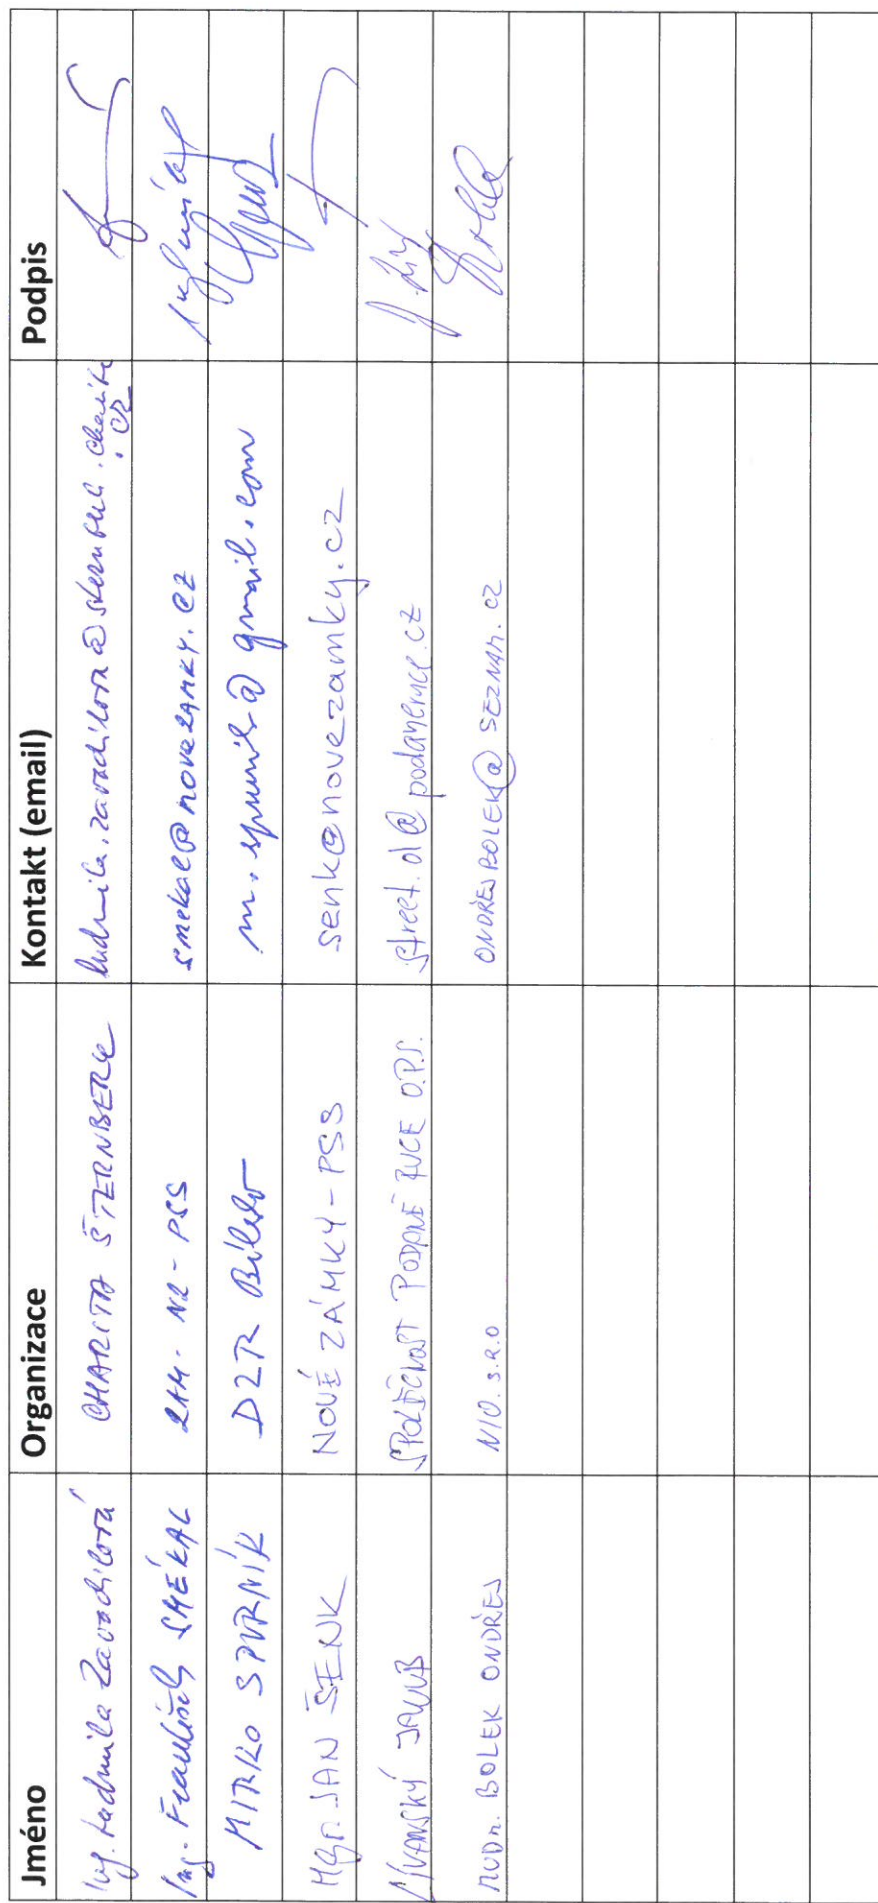 Jméno Organizace Kontakt (email) Podpis
Ing. Ludmila Zavadilová CHARITA ŠTERNBERK ludmila.zavadilova@sternberk.charita
.cz
Ing. František SMÉKAL ZÁM - NZ - PSS smekal@novezamky.cz
MIRKO SPURNÍK DZR Bílsko m.spurnik@gmail.com
Mgr. JAN ŠENK NOVÉ ZÁMKY - PSS senk@novezamky.cz
JAKUB SPOLEČNOST PODANÉ RUCE O.P.S. street.ol@podaneruce.cz
MUDr. BOLEK ONDŘEJ s.r.o ONDŘEJBOLEK@SEZNAM.CZ